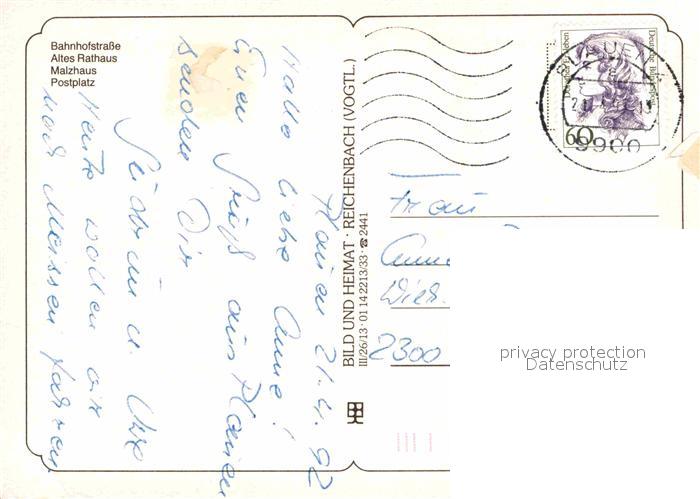 Bahnhofstraße
Altes Rathaus
Malzhaus
Postplatz
Plauen 21.4.92
Hallo liebe Anne!
Einen Gruß aus Plauen
senden Dir
Heute wollen wir
nach Meissen fahren
BILD UND HEIMAT · REICHENBACH (VOGTL.)
III/26/13 · 01 14 2213/33 · ☎ 2441
Deutsche Bundespost
60
PLAUEN
9900
Frau
2300
privacy protection
Datenschutz